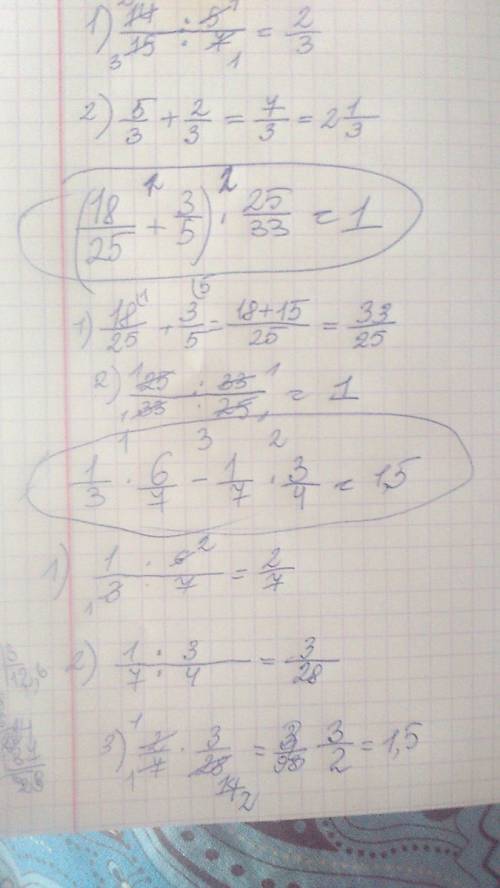 1) 14/15 : 5/7 = 2/3
2) 5/3 + 2/3 = 7/3 = 2 1/3
(18/25 + 3/5) · 25/33 = 1
1) 18/25 + 3/5 = 18+15/25 = 33/25
2) 25/33 : 33/25 = 1
1 3 2
1/3 · 6/7 - 1/7 · 3/4 = 1,5
1) 1/3 : 6/7 = 2/7
2) 1/7 : 3/4 = 3/28
3) 2/7 · 3/28 = 3/98 3/2 = 1,5